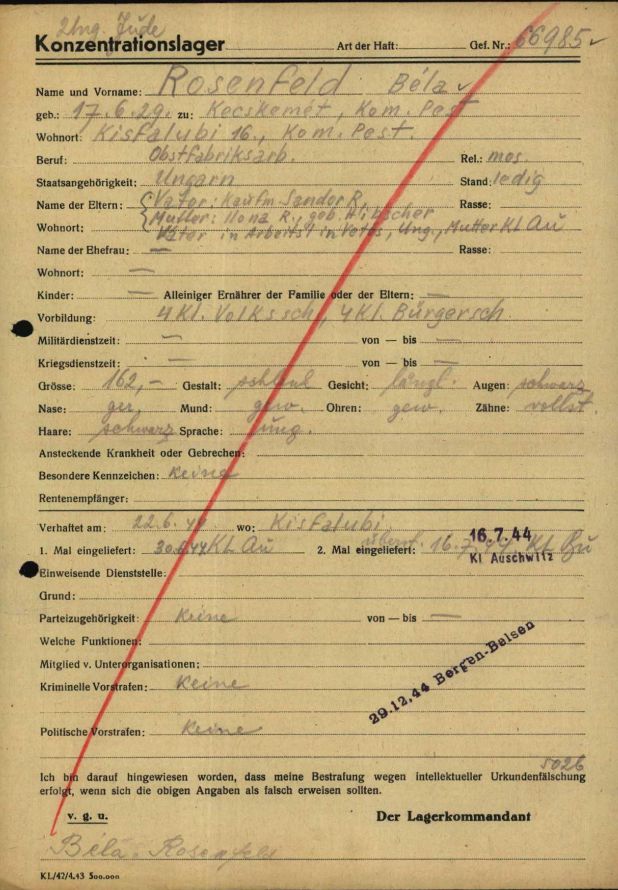 Ung. Jude
Konzentrationslager Art der Haft: Gef. Nr.: 66985
Name und Vorname: Rosenfeld Béla
geb.: 17.6.29. zu: Kecskemét, Kom. Pest
Wohnort: Kisfalubi 16., Kom. Pest.
Beruf: Obstfabriksarb. Rel.: mos.
Staatsangehörigkeit: Ungarn Stand: ledig
Name der Eltern: Vater: Kaufm. Sandor R, Rasse:
Mutter: Ilona R., geb.
Wohnort: Vater in Arbeitsl in Ung., Mutter KL Au
Name der Ehefrau: — Rasse:
Wohnort: —
Kinder: — Alleiniger Ernährer der Familie oder der Eltern: —
Vorbildung: 4 Kl. Volkssch, 4 Kl. Bürgersch
Militärdienstzeit: — von — bis —
Kriegsdienstzeit: — von — bis —
Grösse: 162,- Gestalt: Gesicht: längl. Augen: schwarz
Nase: ger, Mund: gew. Ohren: gew. Zähne: vollst.
Haare: schwarz Sprache: ung.
Ansteckende Krankheit oder Gebrechen:
Besondere Kennzeichen: keine
Rentenempfänger:
Verhaftet am: 22.6.44 wo: Kisfalubi
16.7.44
1. Mal eingeliefert: KL Au 2. Mal eingeliefert: 16.7. KL Bu
Kl Auschwitz
Einweisende Dienststelle:
Grund:
Parteizugehörigkeit: keine von — bis —
Welche Funktionen:
Mitglied v. Unterorganisationen:
Kriminelle Vorstrafen: keine
29.12.44 Bergen-Belsen
Politische Vorstrafen: keine
5026
Ich bin darauf hingewiesen worden, dass meine Bestrafung wegen intellektueller Urkundenfälschung
erfolgt, wenn sich die obigen Angaben als falsch erweisen sollten.
v. g. u. Der Lagerkommandant
Béla Rosenfeld
KL/42/4.43 500.000